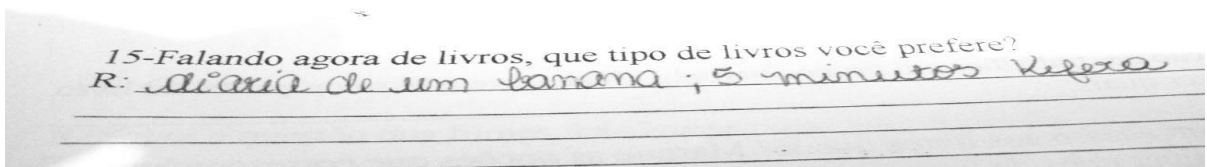 15-Falando agora de livros, que tipo de livros você prefere?
R: diaria de um banana ; 5 minutos Kefera